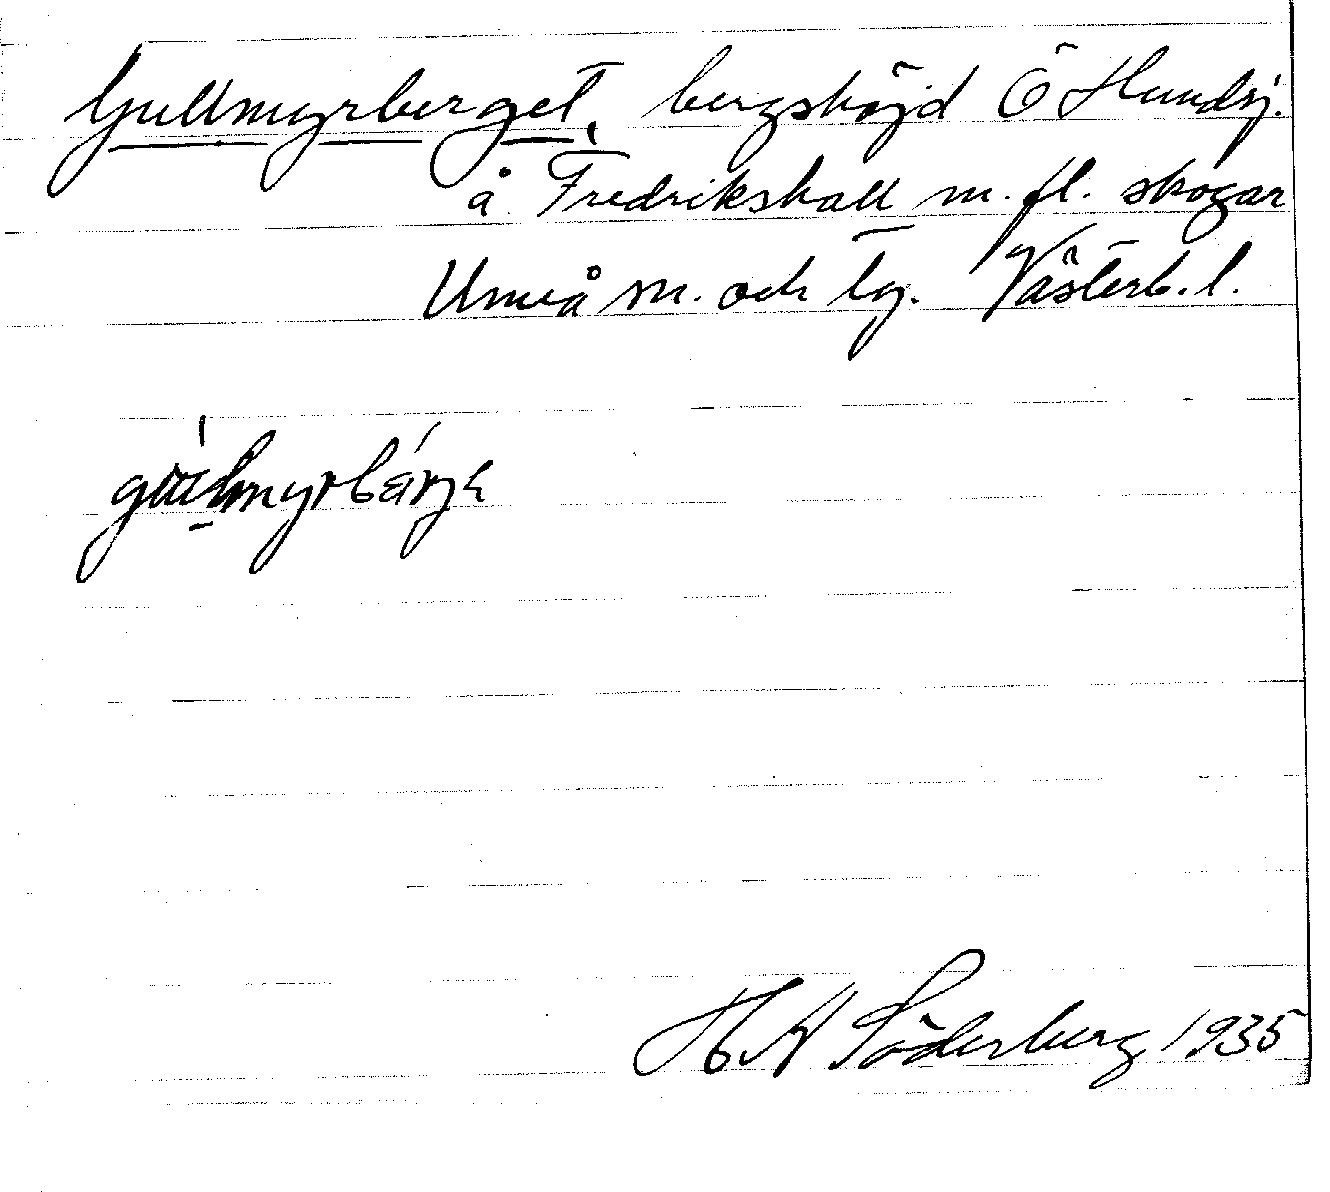 Gullmyrberget, bergshöjd Ö Hundsj.
å Fredrikshall m. fl. skogar
Umeå sn. och tg. Västerb. l.
H A Söderberg 1935